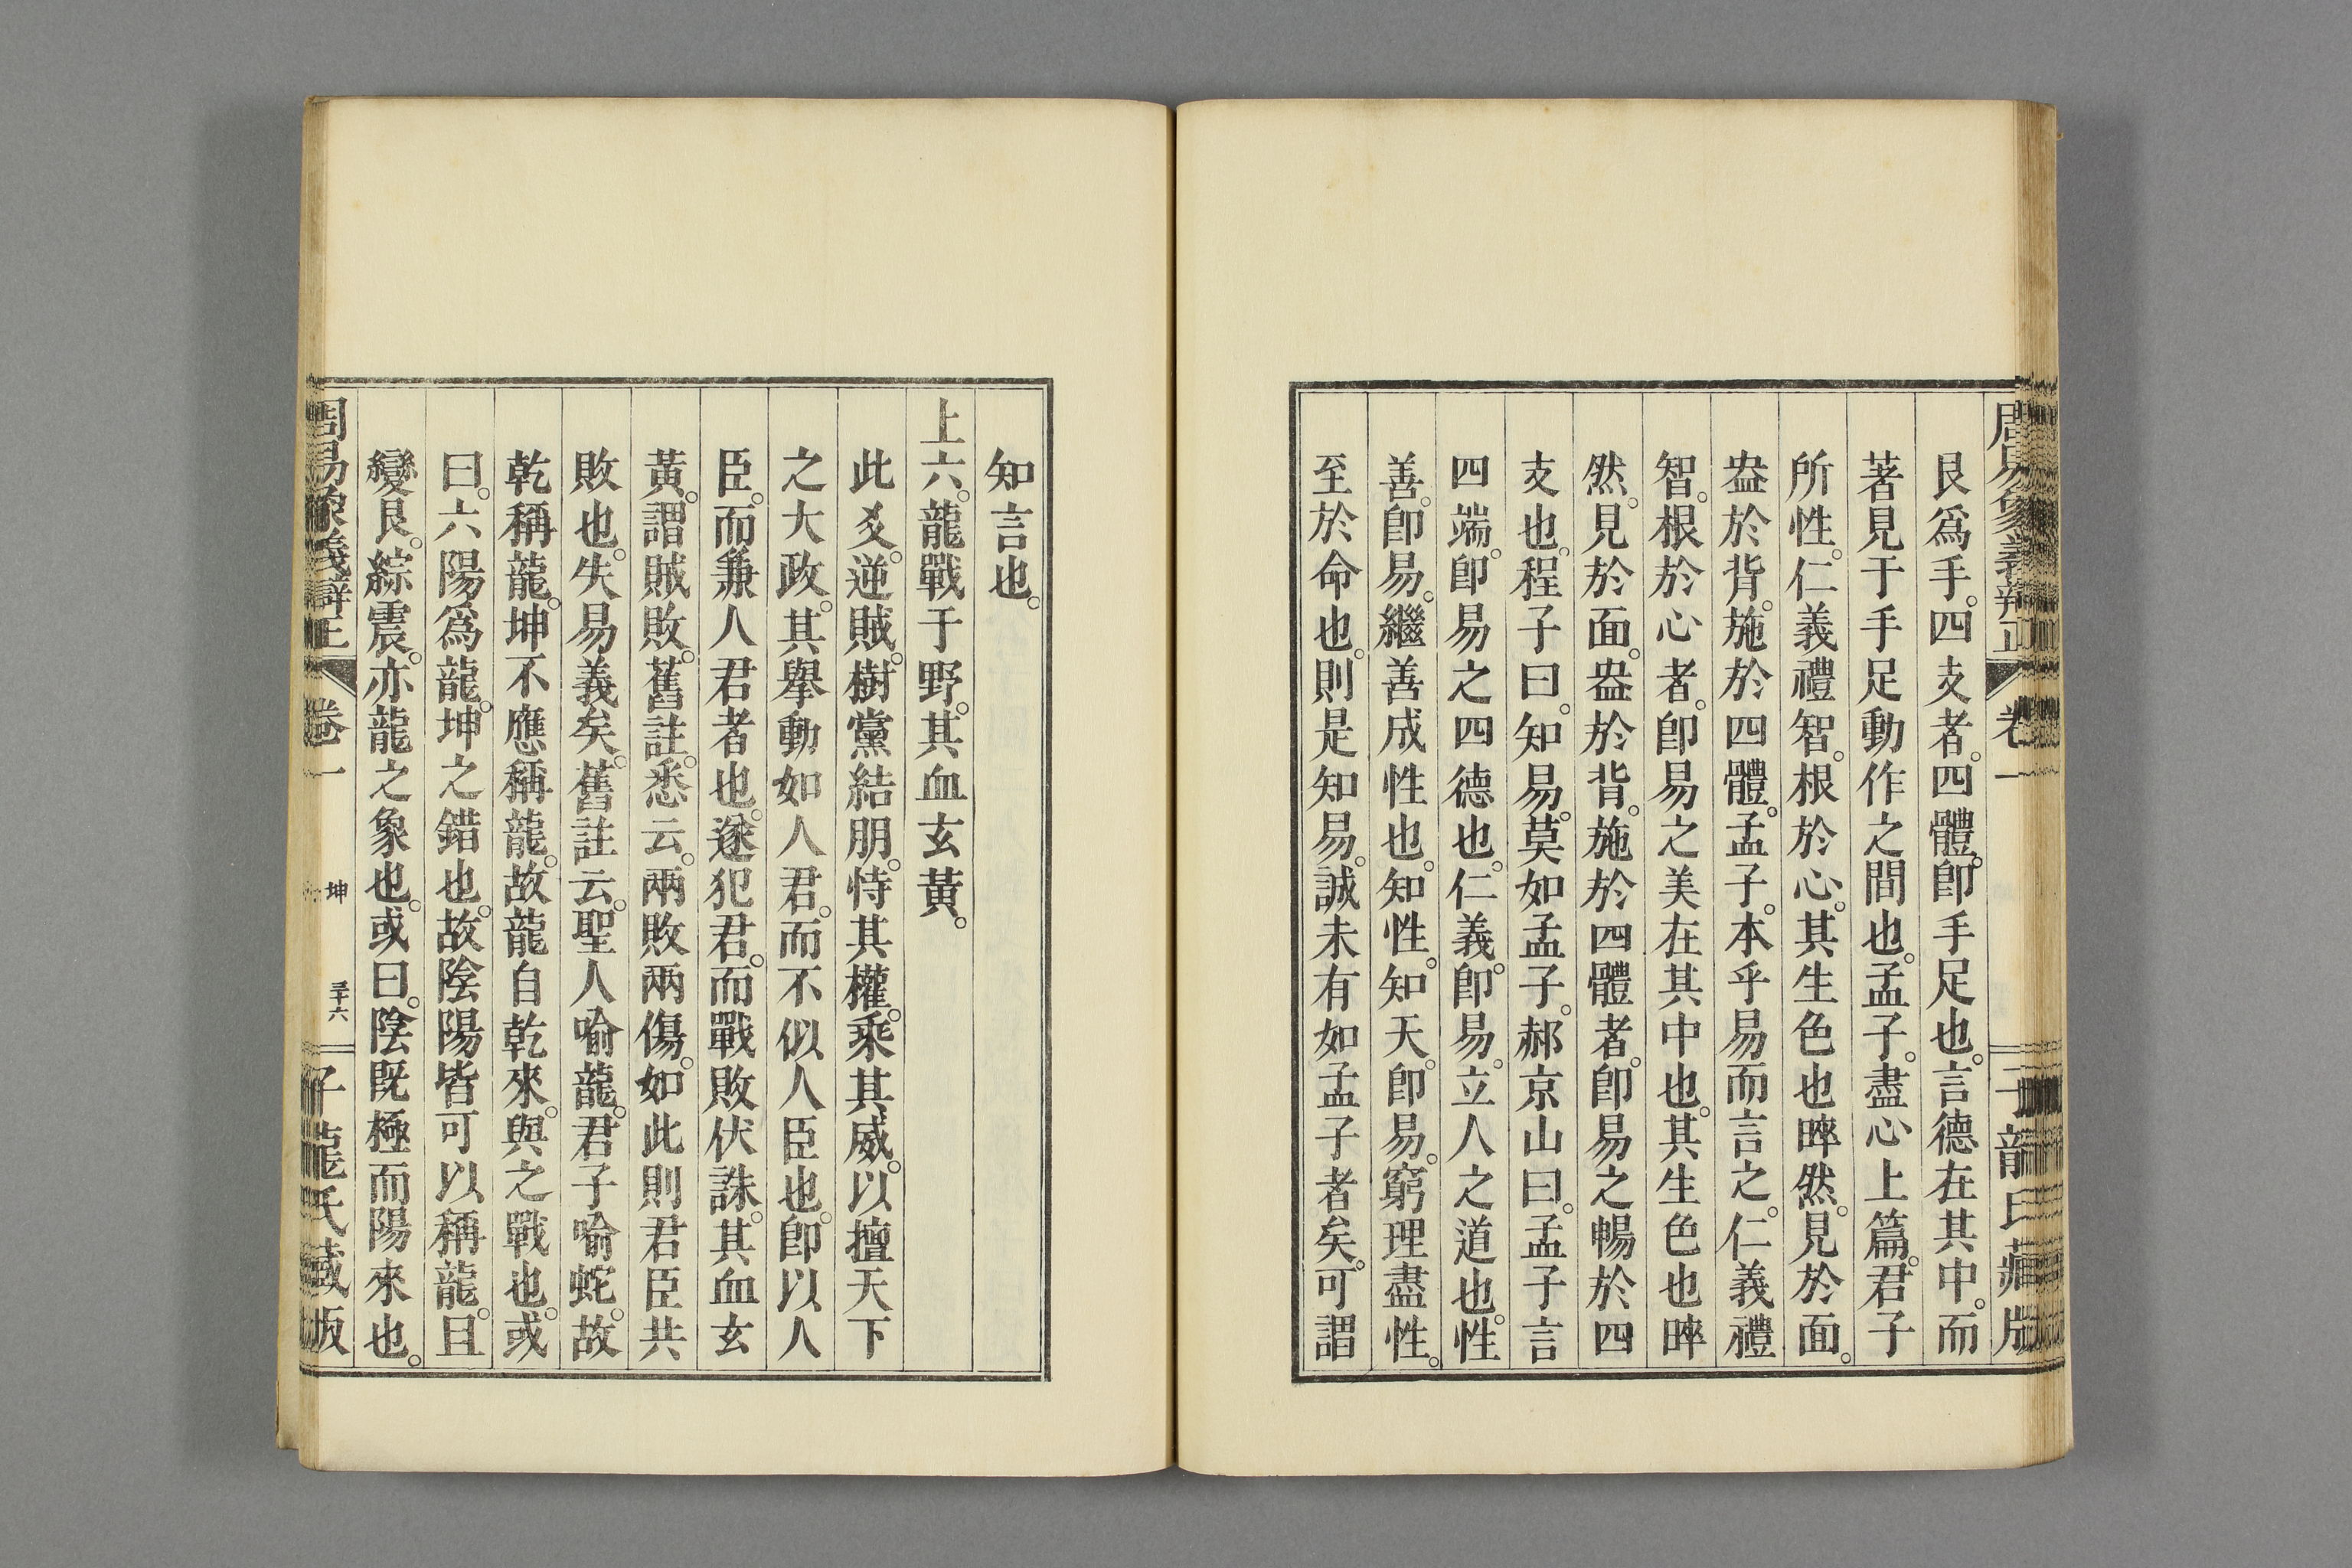 艮爲手。四支者。四體。卽手足也。言德在其中。而
著見于手足動作之間也。孟子。盡心上篇。君子
所性。仁義禮智。根於心。其生色也睟然。見於面。
盎於背。施於四體。孟子。本乎易而言之。仁義禮
智。根於心者。卽易之美在其中也。其生色也睟
然。見於面。盎於背。施於四體者。卽易之暢於四
支也。程子曰。知易。莫如孟子。郝京山曰。孟子言
四端。卽易之四德也。仁義。卽易。立人之道也。性
善。卽易。繼善成性也。知性。知天。卽易。窮理盡性。
至於命也。則是知易。誠未有如孟子者矣。可謂
知言也。
上六。龍戰于野。其血玄黃。
此爻。逆賊。樹黨結朋。恃其權。乘其威。以擅天下
之大政。其擧動如人君。而不似人臣也。卽以人
臣。而兼人君者也。遂犯君。而戰敗伏誅。其血玄
黃。謂賊敗。舊註。悉云。兩敗兩傷。如此則君臣共
敗也。失易義矣。舊註云。聖人喻龍。君子喻蛇。故
乾稱龍。坤不應稱龍。故龍自乾來。與之戰也。或
曰。六陽爲龍。坤之錯也。故陰陽皆可以稱龍。且
變艮。綜震。亦龍之象也。或曰。陰旣極而陽來也。
周易象義辯正 卷一 坤 三十六 子龍氏藏版